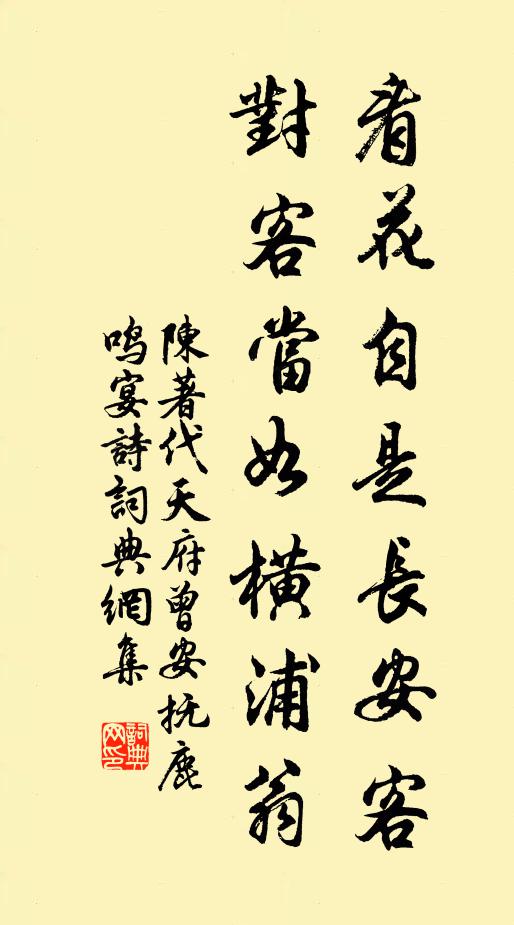 看花自是長安客
對客當如橫浦翁
陳著代天府曾安撫鹿
鳴宴詩詞典網集
詞典网印